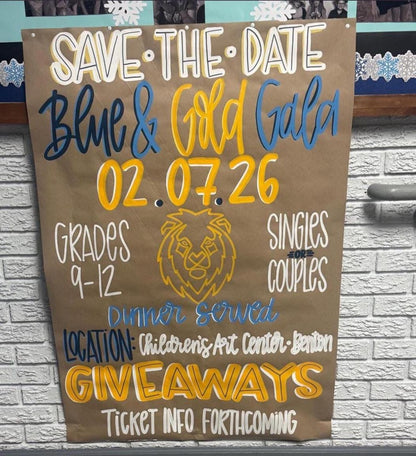 SAVE • THE • DATE
Blue & Gold Gala
02.07.26
GRADES
9-12
SINGLES
OR
COUPLES
DINNER SERVED
LOCATION: Children's Art Center • Benton
GIVEAWAYS
TICKET INFO FORTHCOMING